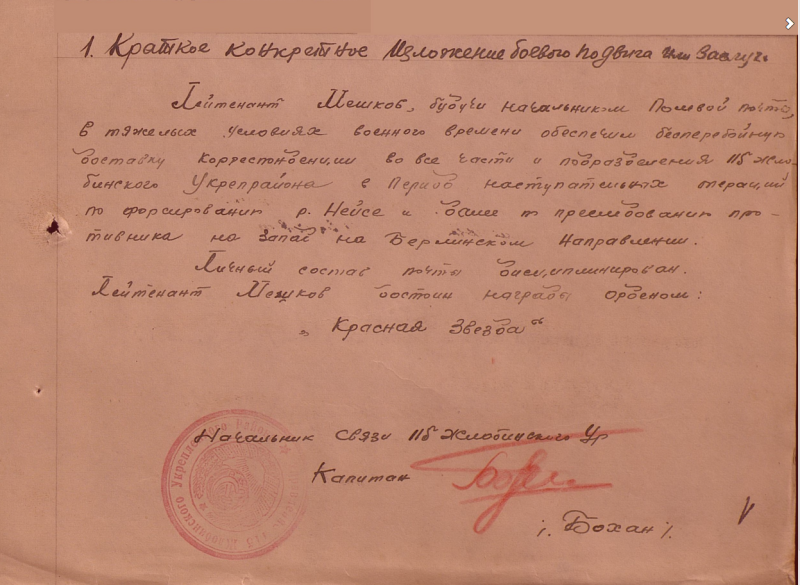 1. Краткое конкретное изложение боевого подвига или заслуг.
Лейтенант Мешков, будучи начальником Полевой почты,
в тяжелых условиях военного времени обеспечил бесперебойную
доставку корреспонденции во все части и подразделения 115 Жло-
бинского Укрепрайона в Период наступательных операций
по форсированию р. Нейсе и далее по преследованию про-
тивника на запад на Берлинском Направлении.
Личный состав почты дисциплинирован.
Лейтенант Мешков достоин награды орденом:
„Красная Звезда“
Начальник связи 115 Жлобинского Ур
Капитан
/. Бохан /.